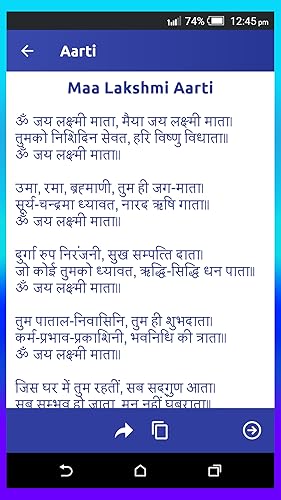 74% 12:45 pm
Aarti
Maa Lakshmi Aarti
ॐ जय लक्ष्मी माता, मैया जय लक्ष्मी माता॥
तुमको निशिदिन सेवत, हरि विष्णु विधाता॥
ॐ जय लक्ष्मी माता॥
उमा, रमा, ब्रह्माणी, तुम ही जग-माता॥
सूर्य-चन्द्रमा ध्यावत, नारद ऋषि गाता॥
ॐ जय लक्ष्मी माता॥
दुर्गा रुप निरंजनी, सुख सम्पत्ति दाता॥
जो कोई तुमको ध्यावत, ऋद्धि-सिद्धि धन पाता॥
ॐ जय लक्ष्मी माता॥
तुम पाताल-निवासिनि, तुम ही शुभदाता॥
कर्म-प्रभाव-प्रकाशिनी, भवनिधि की त्राता॥
ॐ जय लक्ष्मी माता॥
जिस घर में तुम रहतीं, सब सद्गुण आता॥
सब सम्भव हो जाता, मन नहीं घबराता॥